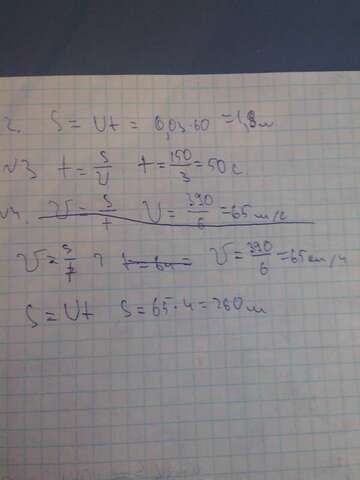 2. S = Ut = 0,03·60 = 1,8 м
√3 t = S/U t = 150/3 = 50 с.
√4. V = S/t U = 390/6 = 65 м/с
V = S/t ? t = 6ч = V = 390/6 = 65 км/ч
S = Ut S = 65·4 = 260 м